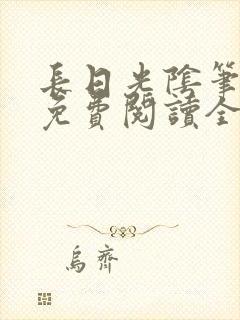 長日光陰筆
免費閱讀全
烏齊